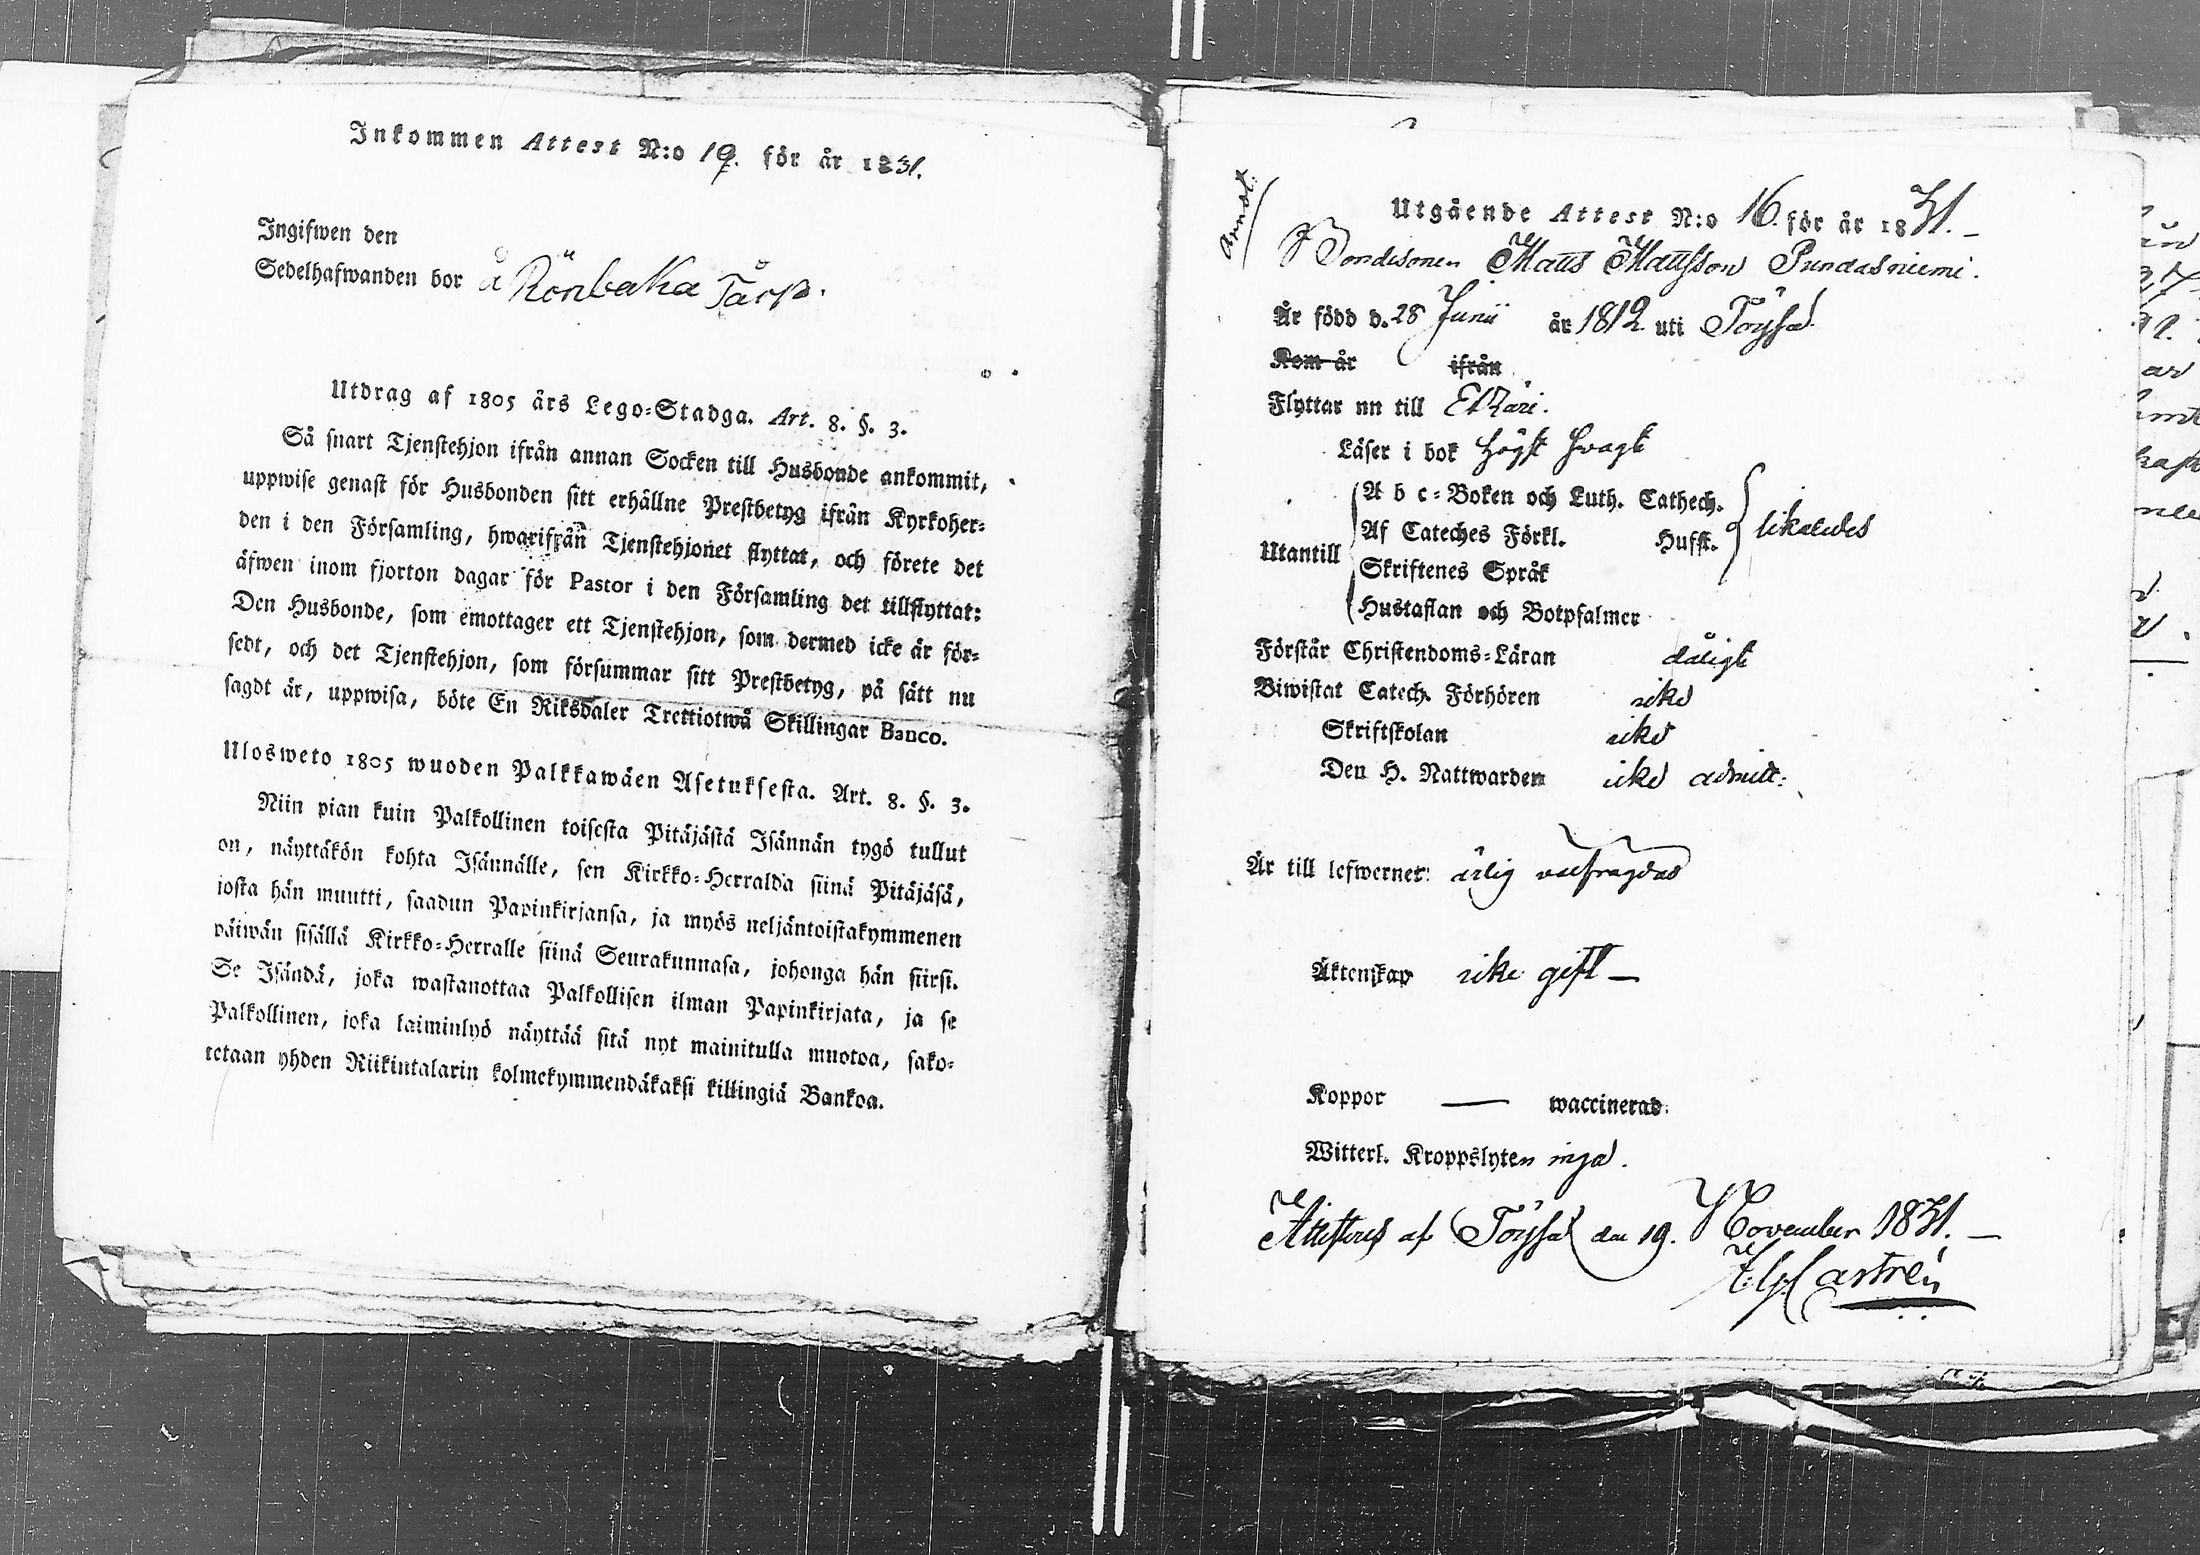 Inkommen Attest N:o 19. för år 1831.
Ingifwen den
Sedelhafwanden bor å Rönbacka Tårp.
Utdrag af 1805 års Lego-Stadga. Art. 8. §. 3.
Så snart Tjenstehjon ifrån annan Socken till Husbonde ankommit,
uppwise genast för Husbonden sitt erhållne Prestbetyg ifrån Kyrkoher-
den i den Församling, hwarifrån Tjenstehjonet flyttat, och förete det
äfwen inom fjorton dagar för Pastor i den Församling det tillflyttat:
Den Husbonde, som emottager ett Tjenstehjon, som dermed icke är för-
sedt, och det Tjenstehjon, som försummar sitt Prestbetyg, på sätt nu
sagdt är, uppwisa, böte En Riksdaler Trettiotwå Skillingar Banco.
Ulosweto 1805 wuoden Palkkawäen Asetuksesta. Art. 8. §. 3.
Niin pian kuin Palkollinen toisesta Pitäjästä Isännän tygö tullut
on, näyttäkön kohta Isännälle, sen Kirkko-Herralda siinä Pitäjäsä,
josta hän muutti, saadun Papinkirjansa, ja myös neljäntoistakymmenen
päiwän sisällä Kirkko-Herralle siinä Seurakunnasa, johonga hän siirsi.
Se Isändä, joka wastanottaa Palkollisen ilman Papinkirjata, ja se
Palkollinen, joka laiminlyö näyttää sitä nyt mainitulla muotoa, sako-
tetaan yhden Riikintalarin kolmekymmendäkaksi killingiä Bankoa.
Utgående Attest N:o 16. för år 1831.
Bondesonen Matts Mattsson Pundasniemi.
Är född d. 28 Junii år 1812 uti Töysä
Kom år ifrån
Flyttar nu till Etzäri.
Läser i bok högst svagt
A b c-Boken och Luth. Cathech.
Af Cateches Förkl. Hufst. likaledes
Utantill
Skriftenes Språk
Hustaflan och Botpsalmer
Förstår Christendoms-Läran dåligt
Biwistat Catech. Förhören icke
Skriftskolan icke
Den H. Nattwarden icke admitt:
Är till lefwernet: ärlig välfrägdad
Äktenskap icke gift —
Koppor — waccinerad.
Witterl. Kroppslyten inga.
Attesteras af Töysä den 19. November 1831. —
Castrén